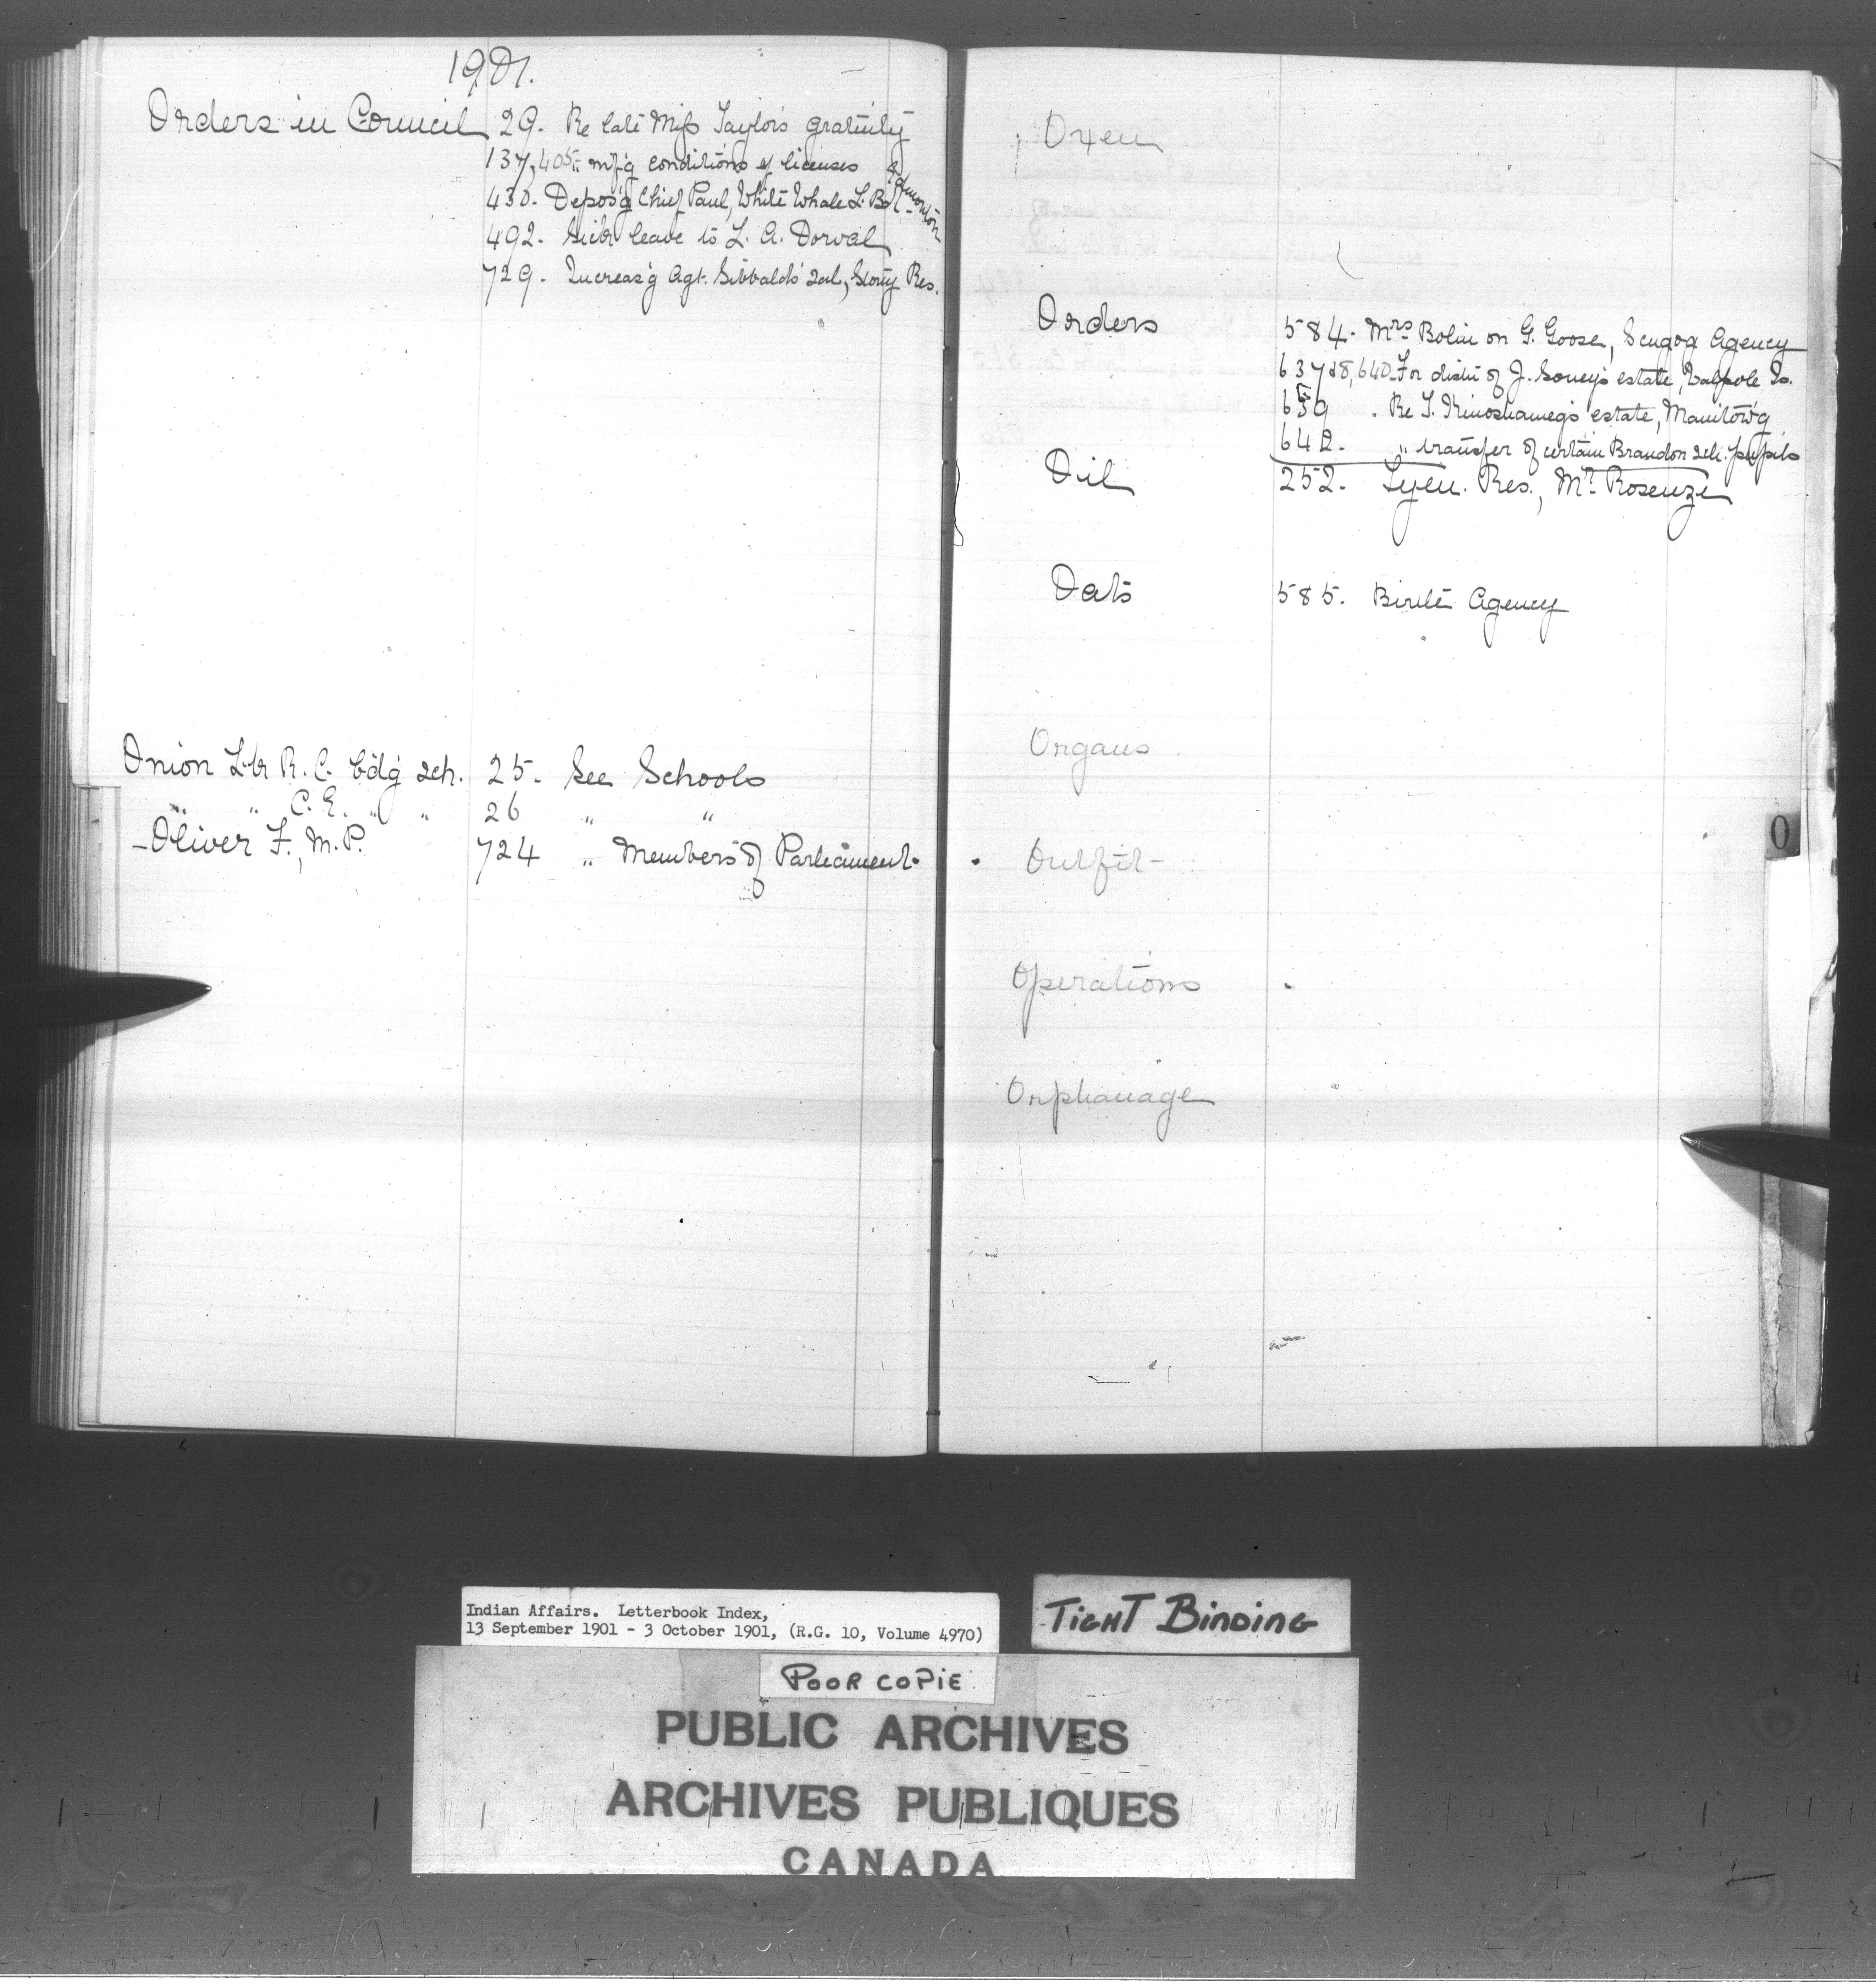 1901.
Orders in Council 29. Re late Miss Taylor's gratuity
137, 405 " mf'g conditions of licenses
430. Depos'g Chief Paul, White Whale L. Bd Edmonton
492. Sick leave to L. A. Dorval
729. Increas'g Agt. Sibbald's sal, Stony Res.
Onion Lk R. C. bd'g sch. 25. See Schools
" " C. E. " " 26 " "
Oliver F., M.P. 724 " Members of Parliament
Oxen
Orders 584. Mrs on G. Goose, Scugog Agency
637 & 8, 640. For distn of J. Soney's estate, Walpole Is.
639. Re T. Kinoshameg's estate, Manitow'g
642. " transfer of certain Brandon sch. pupils
Oil 252. Tyen. Res., Mr.
Oats 585. Birtle Agency
Organs
Outfit
Operations
Orphanage
O
Indian Affairs. Letterbook Index,
13 September 1901 - 3 October 1901, (R.G. 10, Volume 4970)
TIGHT BINDING
POOR COPIE
PUBLIC ARCHIVES
ARCHIVES PUBLIQUES
CANADA